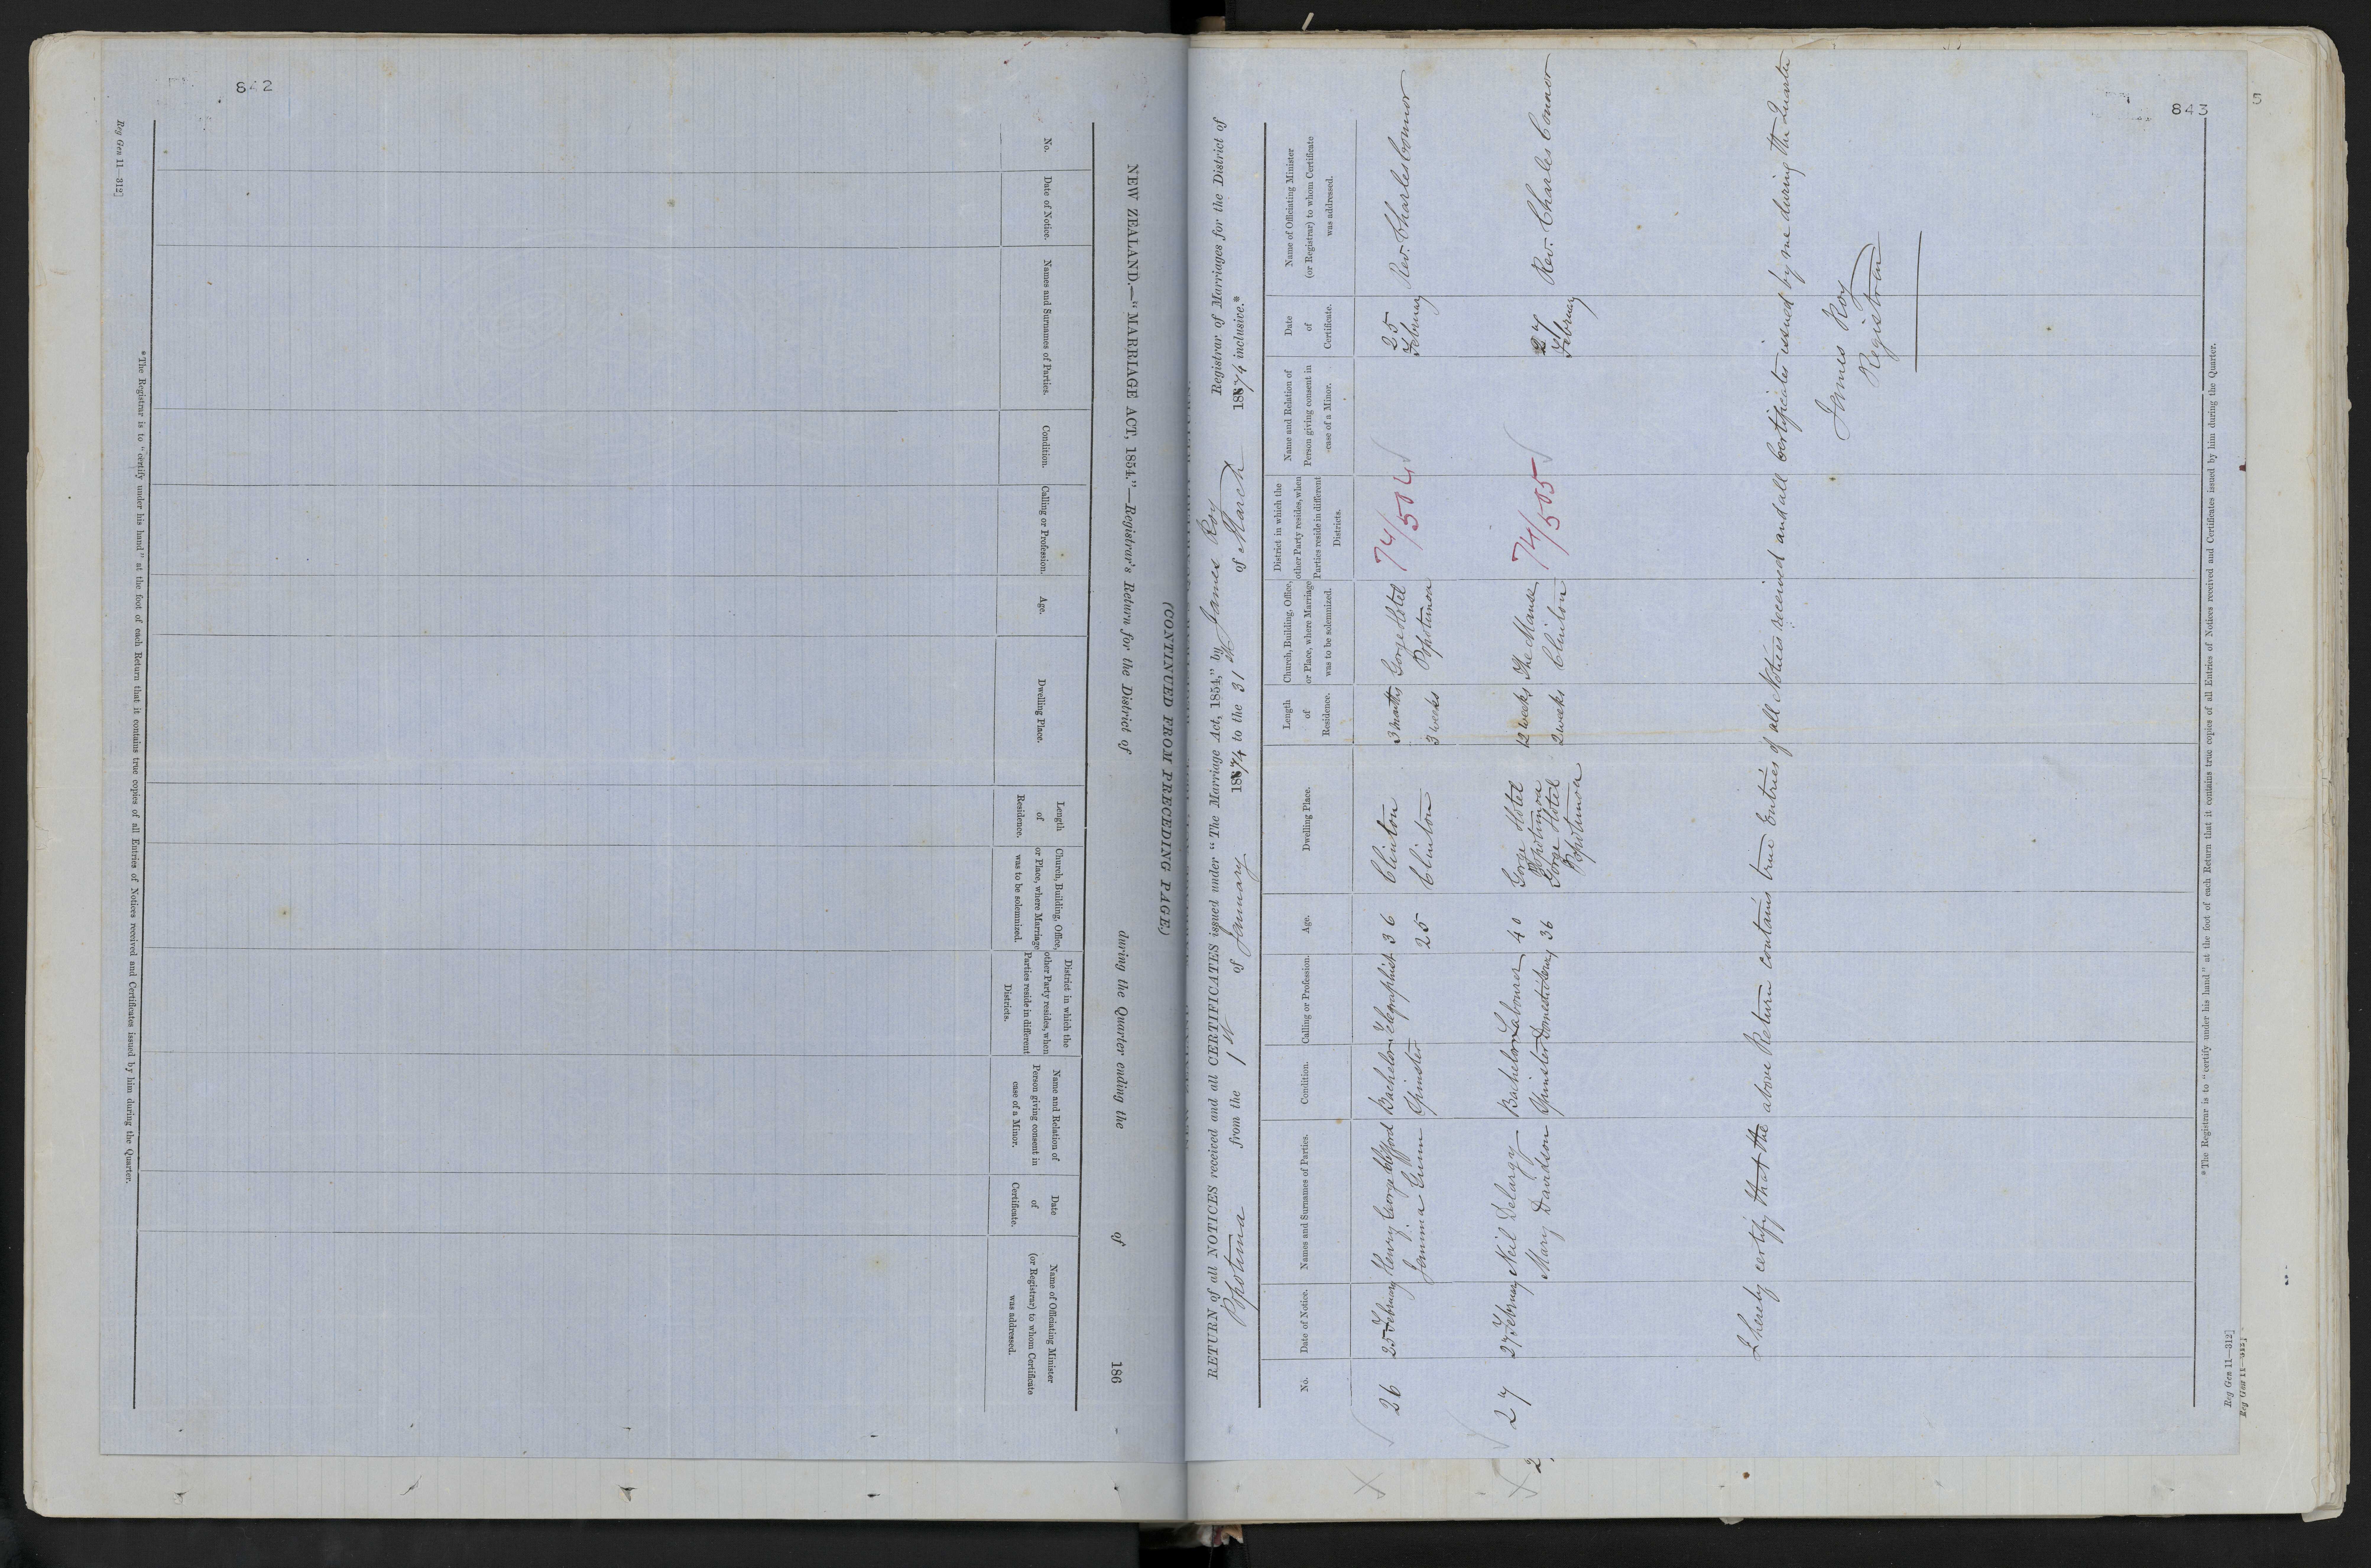 842
Reg Gen 11—312]
(CONTINUED FROM PRECEDING PAGE.)
NEW ZEALAND.—"MARRIAGE ACT, 1854."—Registrar's Return for the District of during the Quarter ending the of 186
No.
Date of Notice.
Names and Surnames of Parties.
Condition.
Calling or Profession.
Age.
Dwelling Place.
Length
of
Residence.
Church, Building, Office,
or Place, where Marriage
was to be solemnized.
District in which the
other Party resides, when
Parties reside in different
Districts.
Name and Relation of
Person giving consent in
case of a Minor.
Date
of
Certificate.
Name of Officiating Minister
(or Registrar) to whom Certificate
was addressed.
*The Registrar is to "certify under his hand" at the foot of each Return that it contains true copies of all Entries of Notices received and Certificates issued by him during the Quarter.
843
5
RETURN of all NOTICES received and all CERTIFICATES issued under "The Marriage Act, 1854," by James Roy Registrar of Marriages for the District of
Popotunoa from the 1st of January 1874 to the 31st of March 1874 inclusive.*
No.
Date of Notice.
Names and Surnames of Parties.
Condition.
Calling or Profession.
Age.
Dwelling Place.
Length
of
Residence.
Church, Building, Office,
or Place, where Marriage
was to be solemnized.
District in which the
other Party resides, when
Parties reside in different
Districts.
Name and Relation of
Person giving consent in
case of a Minor.
Date
of
Certificate.
Name of Officiating Minister
(or Registrar) to whom Certificate
was addressed.
26 25 February Henry George Clifford Bachelor Telegraphist 36 Clinton 3 months Gorge Hotel 74/504 25 February Rev. Charles Connor
Jemima Gunn Spinster 25 Clinton 3 weeks Popotunoa
27 27 February Neil Delargy Bachelor Labourer 40 Gorge Hotel Popotunoa 12 weeks The Manse 74/505 27 February Rev. Charles Connor
Mary Davidson Spinster Domestic 36 Gorge Hotel Popotunoa 2 weeks Clinton
I hereby certify that the above Return contains true Entries of all Notices received and all Certificates issued by me during the Quarter
James Roy
Registrar
*The Registrar is to "certify under his hand" at the foot of each Return that it contains true copies of all Entries of Notices received and Certificates issued by him during the Quarter.
Reg Gen 11—312]
Reg Gen 11—312]